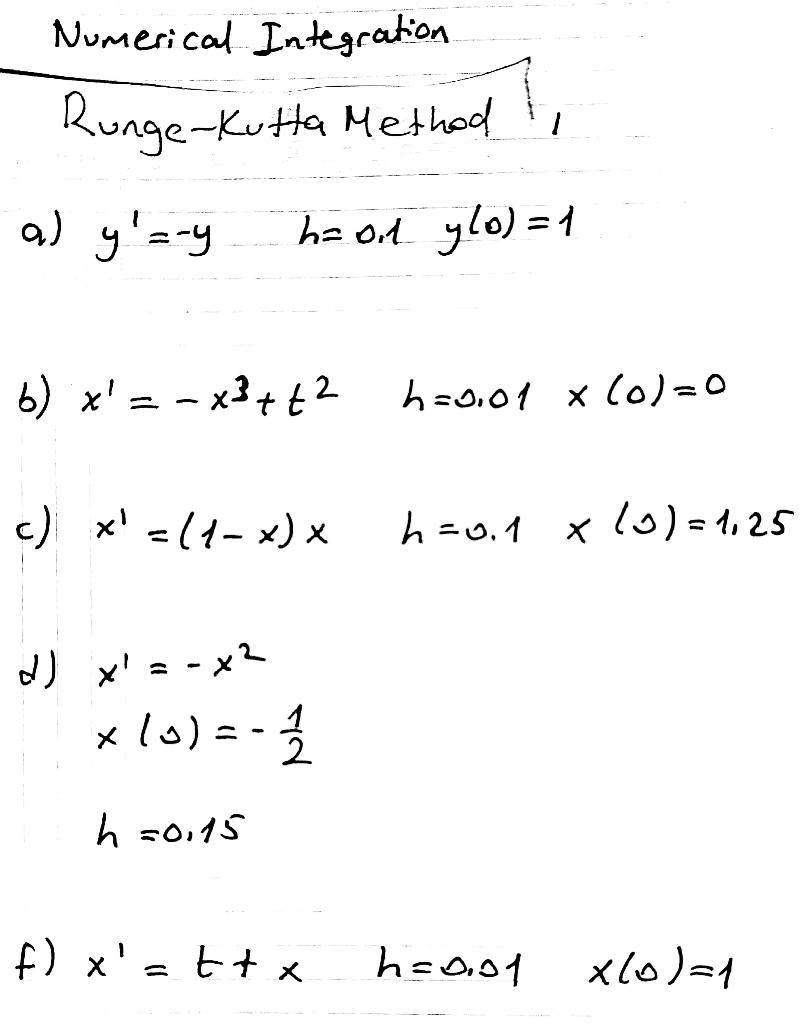 Numerical Integration
Runge-Kutta Method
a) y' = -y h = 0,1 y(0) = 1
b) x' = - x³ + t² h = 0,01 x (0) = 0
c) x' = (1 - x) x h = 0.1 x (0) = 1,25
d) x' = - x²
x (0) = - 1/2
h = 0,15
f) x' = t + x h = 0,01 x(0) = 1